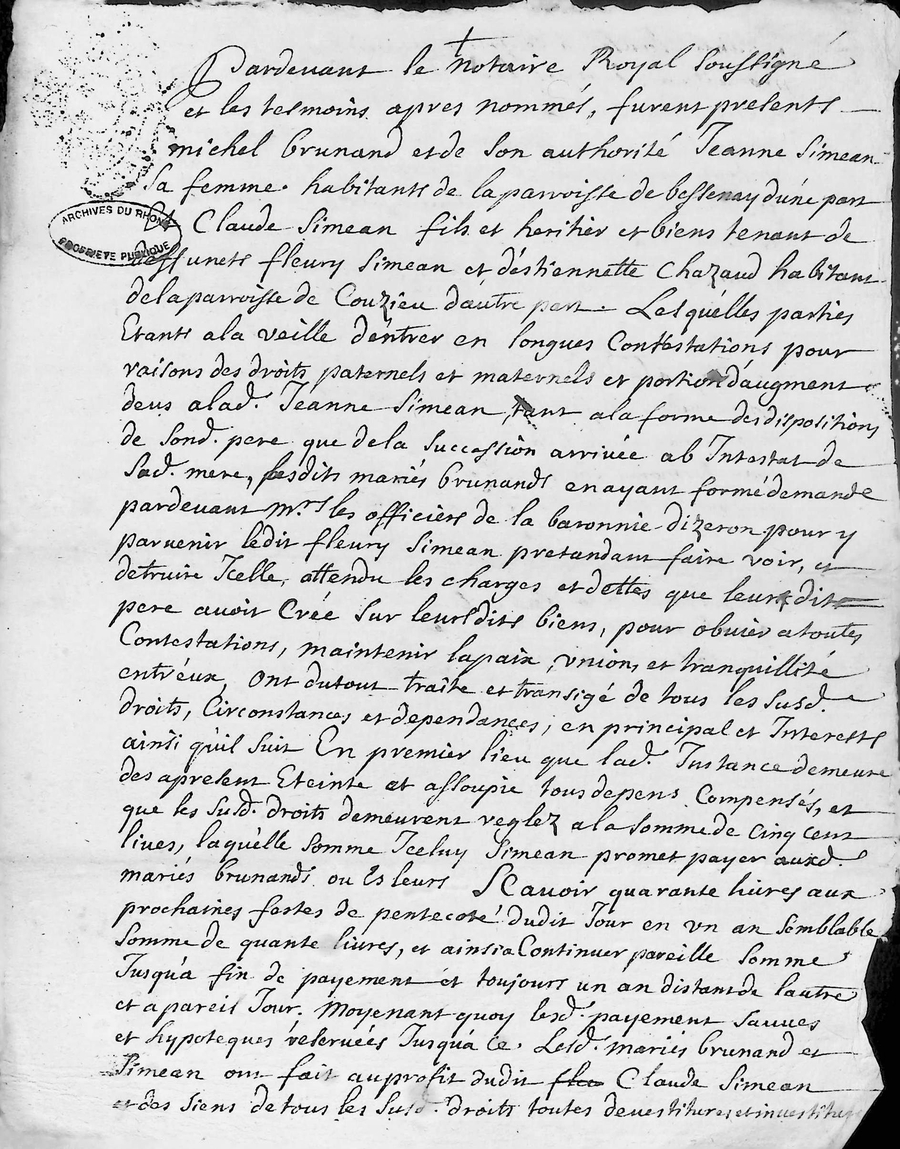 Pardevant le notaire Royal soussigné
et les tesmoins apres nommés, furent presents
michel brunand et de son authorité Jeanne Simean
Sa femme. habitants de la parroisse de bessenay d'une part
Et Claude Simean fils et heritier et biens tenant de
ARCHIVES DU RHONE
PROPRIETE PUBLIQUE
deffunets fleury Simean et d'éstiennette Chazaud habitant
de la parroisse de Couzieu d'autre part. Lesquélles parties
Etants a la veille d'éntrer en longues Contéstations pour
raisons des droits paternels et maternels et portion d'augment
deus a lad. Jeanne Simean, tant a la forme des dispositions
de sond. pere que de la succession arrivée ab Intestat de
Sad. mere, lesdits mariés brunands en ayant formé demande
pardevant mrs les officiers de la baronnie dizeron pour y
parvenir ledit fleury Simean pretandant faire voir, et
detruire Icelle, attendu les charges et dettes que leurdit
pere avoit Créé Sur leursdits biens, pour obvier a toutes
Contestations, maintenir la paix, vnions et tranquillité
entr'éux, ont dutout traité et transigé de tous les susd.
droits, Circonstances et dependances, en principal et Interests
ainsi qu'il suit En premier lieu que lad. Instance demeure
des apresent Eteinte et assoupie tous depens Compensés, et
que les susd. droits demeurent reglez a la somme de Cinq cent
livres, laquélle somme Iceluy Simean promet payer auxd.
mariés brunands ou Es leurs Scavoir quarante livres aux
prochaines festes de pentecoté dudit Jour en vn an semblable
somme de quante livres, et ainsi a Continuer pareille somme
Jusqu'a fin de payement et toujours un an distant de lautre
et a pareil Jour. Moyenant quoy lesd. payement sauves
et hypoteques réservées Jusqu'a ce. Lesd. mariés brunand et
Simean ont fait au profit dudit Claude Simean
et des siens de tous les susd. droits toutes devestitures et investitures